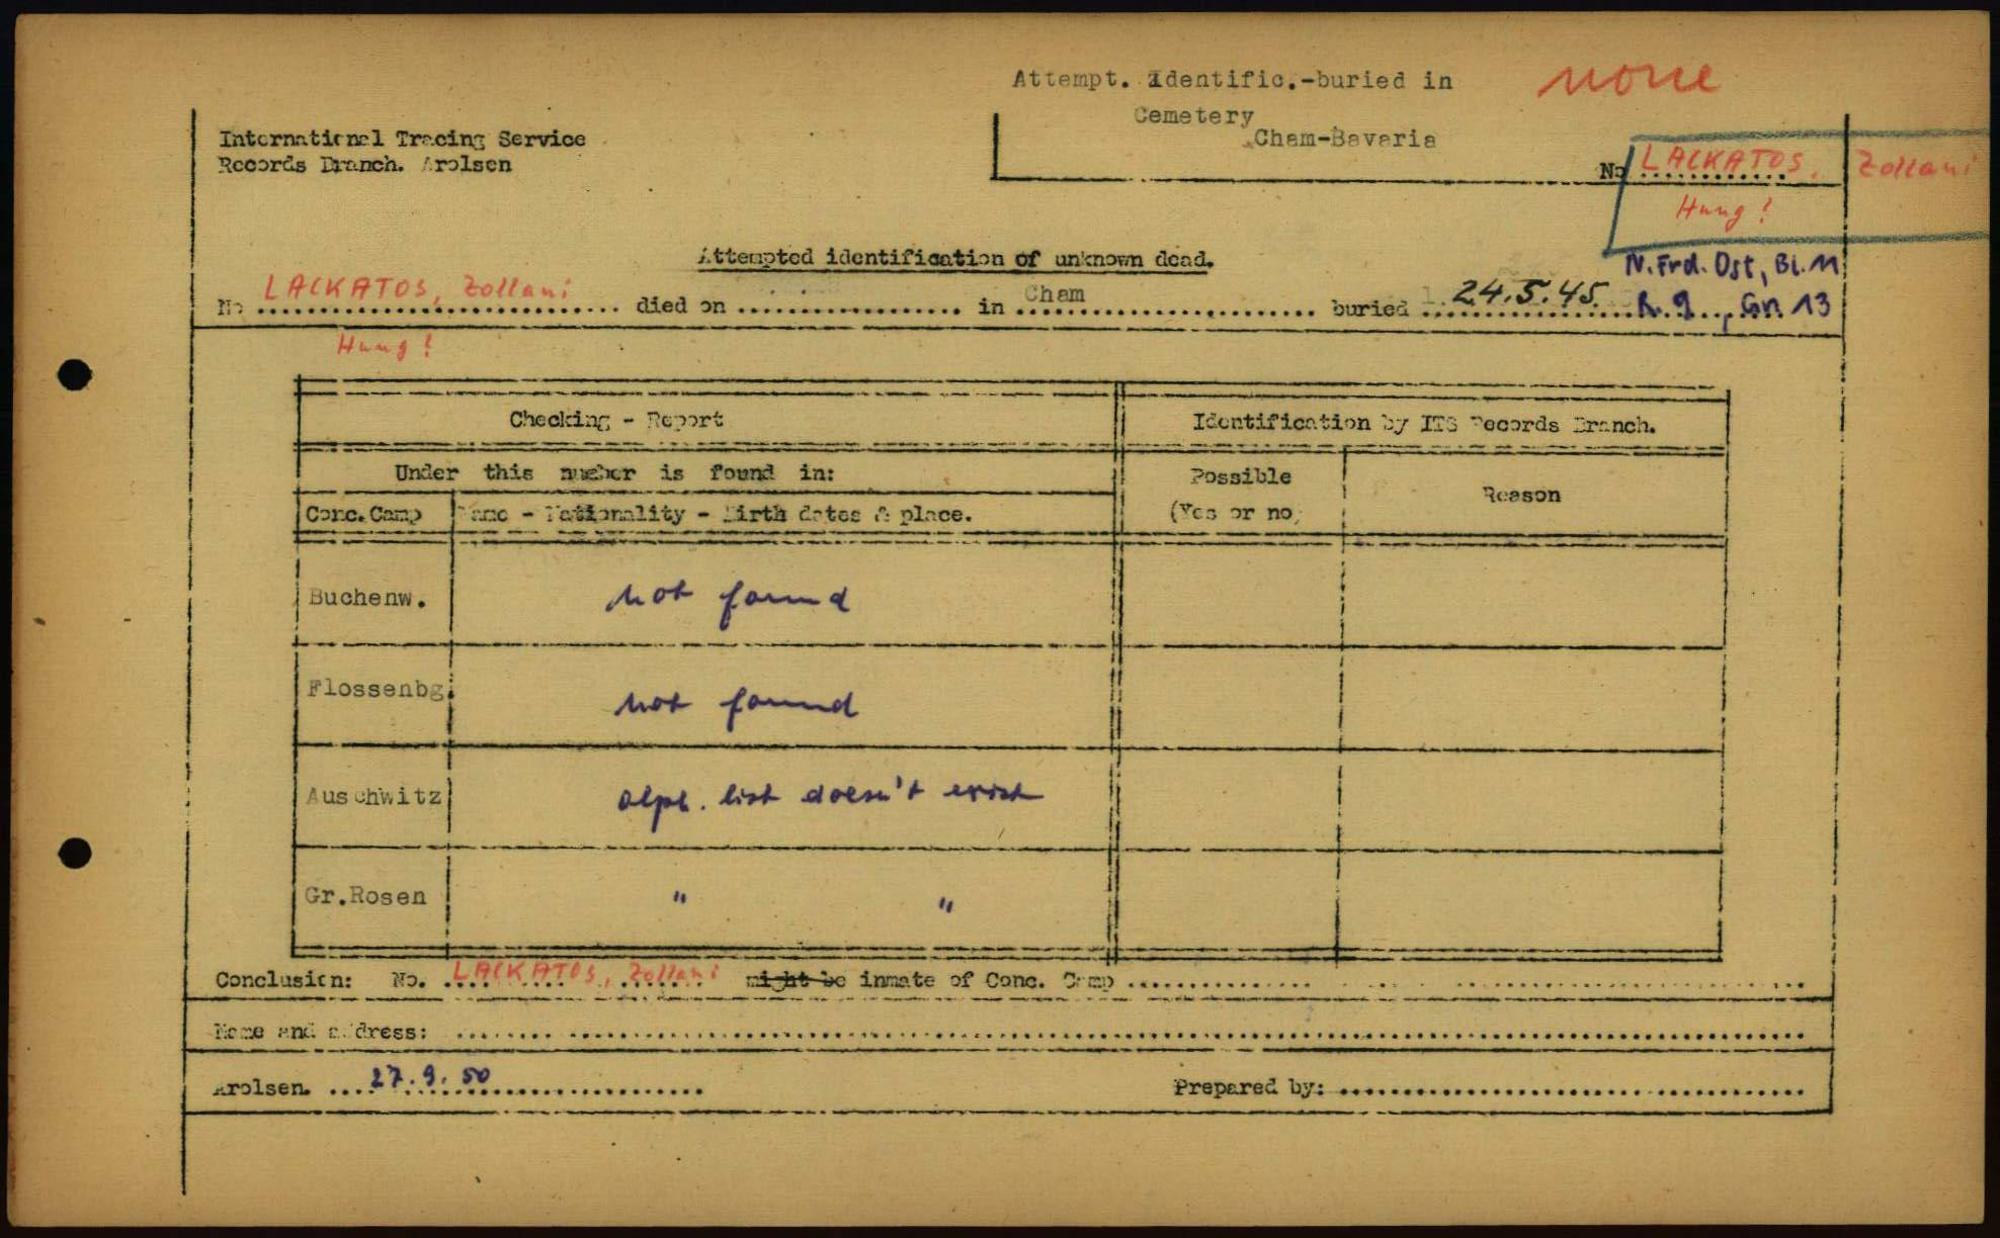 Attempt. Identific.-buried in
none
Cemetery
Cham-Bavaria
International Tracing Service
Records Branch. Arolsen
No LACKATOS, Zollani
Hung!
Attempted identification of unknown dead.
N. Frd. Ost, Bl. M
No LACKATOS, Zollani died on .................. in Cham buried 24.5.45. R. 9, Gr. 13
Hung!
Checking - Report
Identification by ITS Records Branch.
Under this number is found in:
Possible
(Yes or no)
Reason
Conc.Camp
Name - Nationality - Birth dates & place.
Buchenw.
not found
Flossenbg.
not found
Auschwitz
alph. list doesn't exist
Gr.Rosen
" "
Conclusion: No. LACKATOS, Zollani might be inmate of Conc. Camp ..................
Name and address: ..................
Arolsen. 27.9.50
Prepared by: ..................